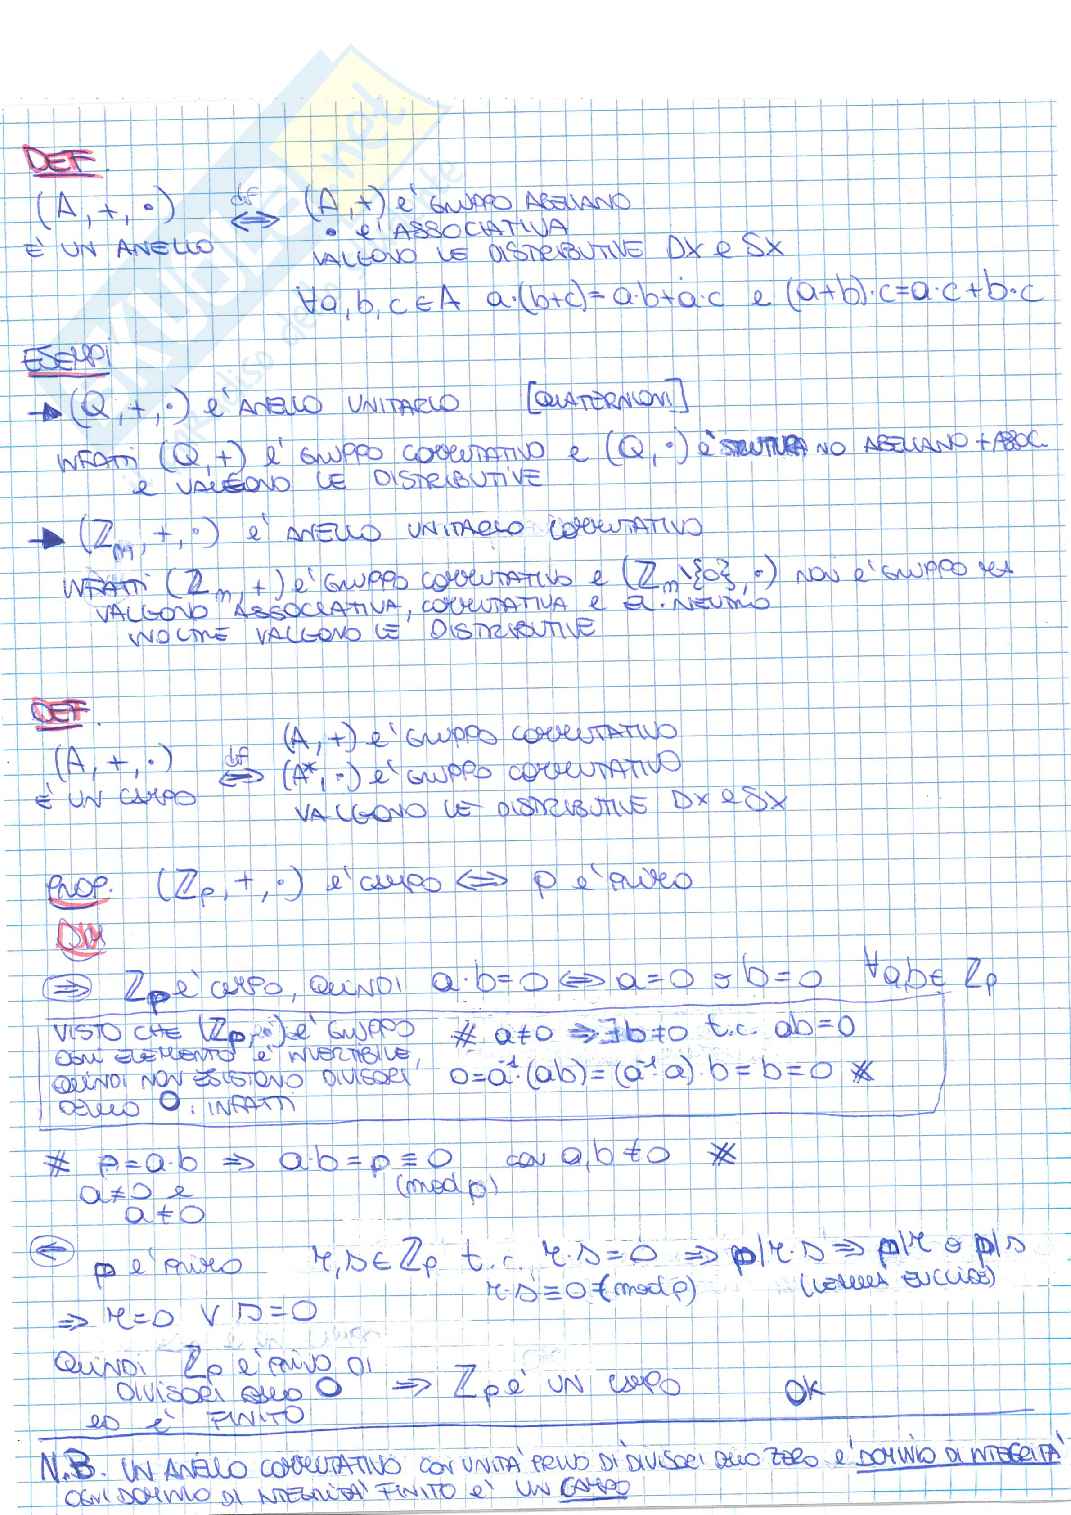 DEF.
(A, +, ·) ⇔ df (A, +) è GRUPPO ABELIANO
È UN ANELLO · è ASSOCIATIVA
VALGONO LE DISTRIBUTIVE Dx e Sx
∀a, b, c ∈ A a·(b+c)=a·b+a·c e (a+b)·c=a·c+b·c
ESEMPI
→ (Q, +, ·) è ANELLO UNITARIO [QUATERNIONI]
INFATTI (Q, +) è GRUPPO COMMUTATIVO e (Q, ·) è STRUTTURA NO ABELIANO + ASSOC.
e VALGONO LE DISTRIBUTIVE
→ (ℤm, +, ·) è ANELLO UNITARIO COMMUTATIVO
INFATTI (ℤm, +) è GRUPPO COMMUTATIVO e (ℤm\{0}, ·) NON è GRUPPO MA
VALGONO ASSOCIATIVA, COMMUTATIVA e EL. NEUTRO
INOLTRE VALGONO LE DISTRIBUTIVE
DEF.
(A, +) è GRUPPO COMMUTATIVO
(A, +, ·) ⇔ df (A*, ·) è GRUPPO COMMUTATIVO
È UN CAMPO VALGONO LE DISTRIBUTIVE Dx e Sx
PROP. (ℤp, +, ·) è campo ⇔ p è primo
DIM
⇒ ℤp è campo, QUINDI a·b=0 ⇔ a=0 o b=0 ∀a,b ∈ ℤp
VISTO CHE (ℤp, ·) è GRUPPO # a≠0 ⇒ ∃b≠0 t.c. ab=0
OGNI ELEMENTO è INVERTIBILE,
QUINDI NON ESISTONO DIVISORI 0=a⁻¹·(ab)=(a⁻¹·a)·b=b=0 #
DELLO 0. INFATTI
# p=a·b ⇒ a·b=p≡0 con a,b≠0 #
a≠0 e (mod p)
a≠0
⇐ p è primo r,s∈ℤp t.c. r·s=0 ⇒ p|r·s ⇒ p|r o p|s
r·s≡0 (mod p) (LEMMA EUCLIDE)
⇒ r=0 ∨ s=0
QUINDI ℤp è PRIVO DI
DIVISORI dello 0 ⇒ ℤp è UN CAMPO OK
ed è FINITO
N.B. UN ANELLO COMMUTATIVO CON UNITÀ PRIVO DI DIVISORI DELLO ZERO è DOMINIO DI INTEGRITÀ
OGNI DOMINIO DI INTEGRITÀ FINITO è UN CAMPO